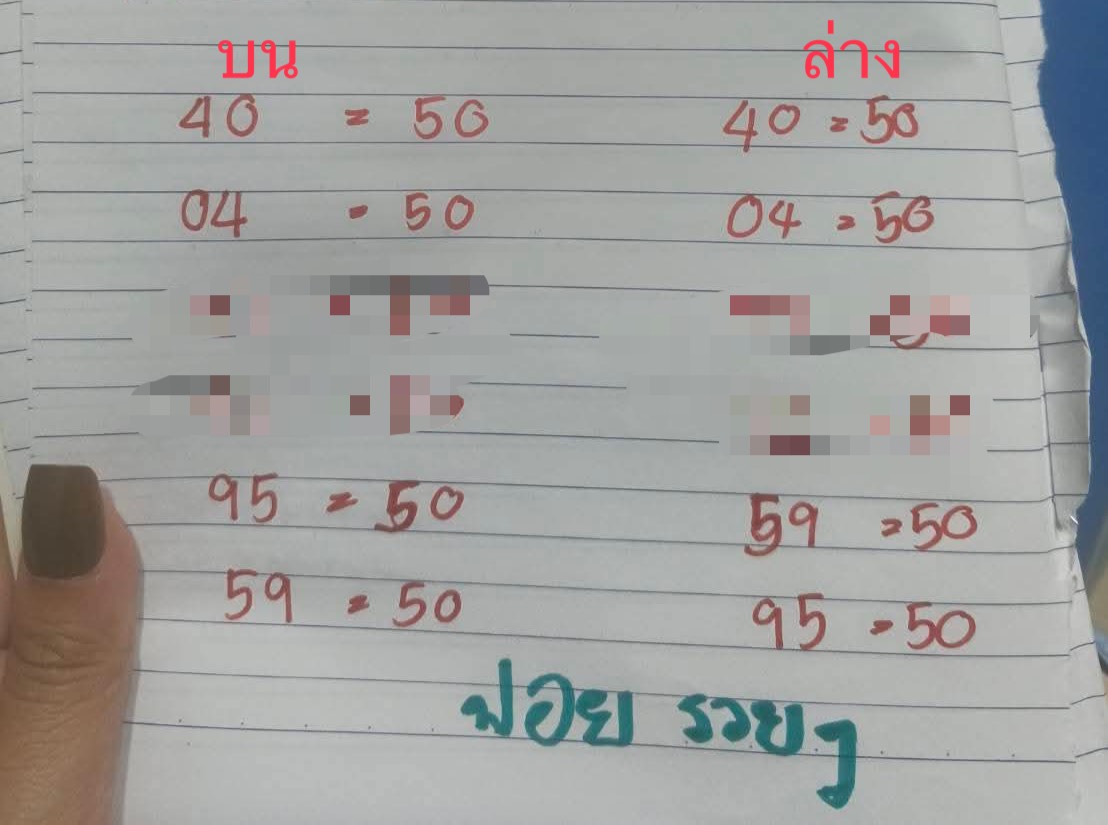 บน ล่าง
40 = 50 40 = 50
04 = 50 04 = 50
95 = 50 59 = 50
59 = 50 95 = 50
ฟอย รวยๆ